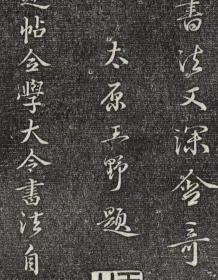 書法又深益奇
太原王野題
帖全學大令書法自